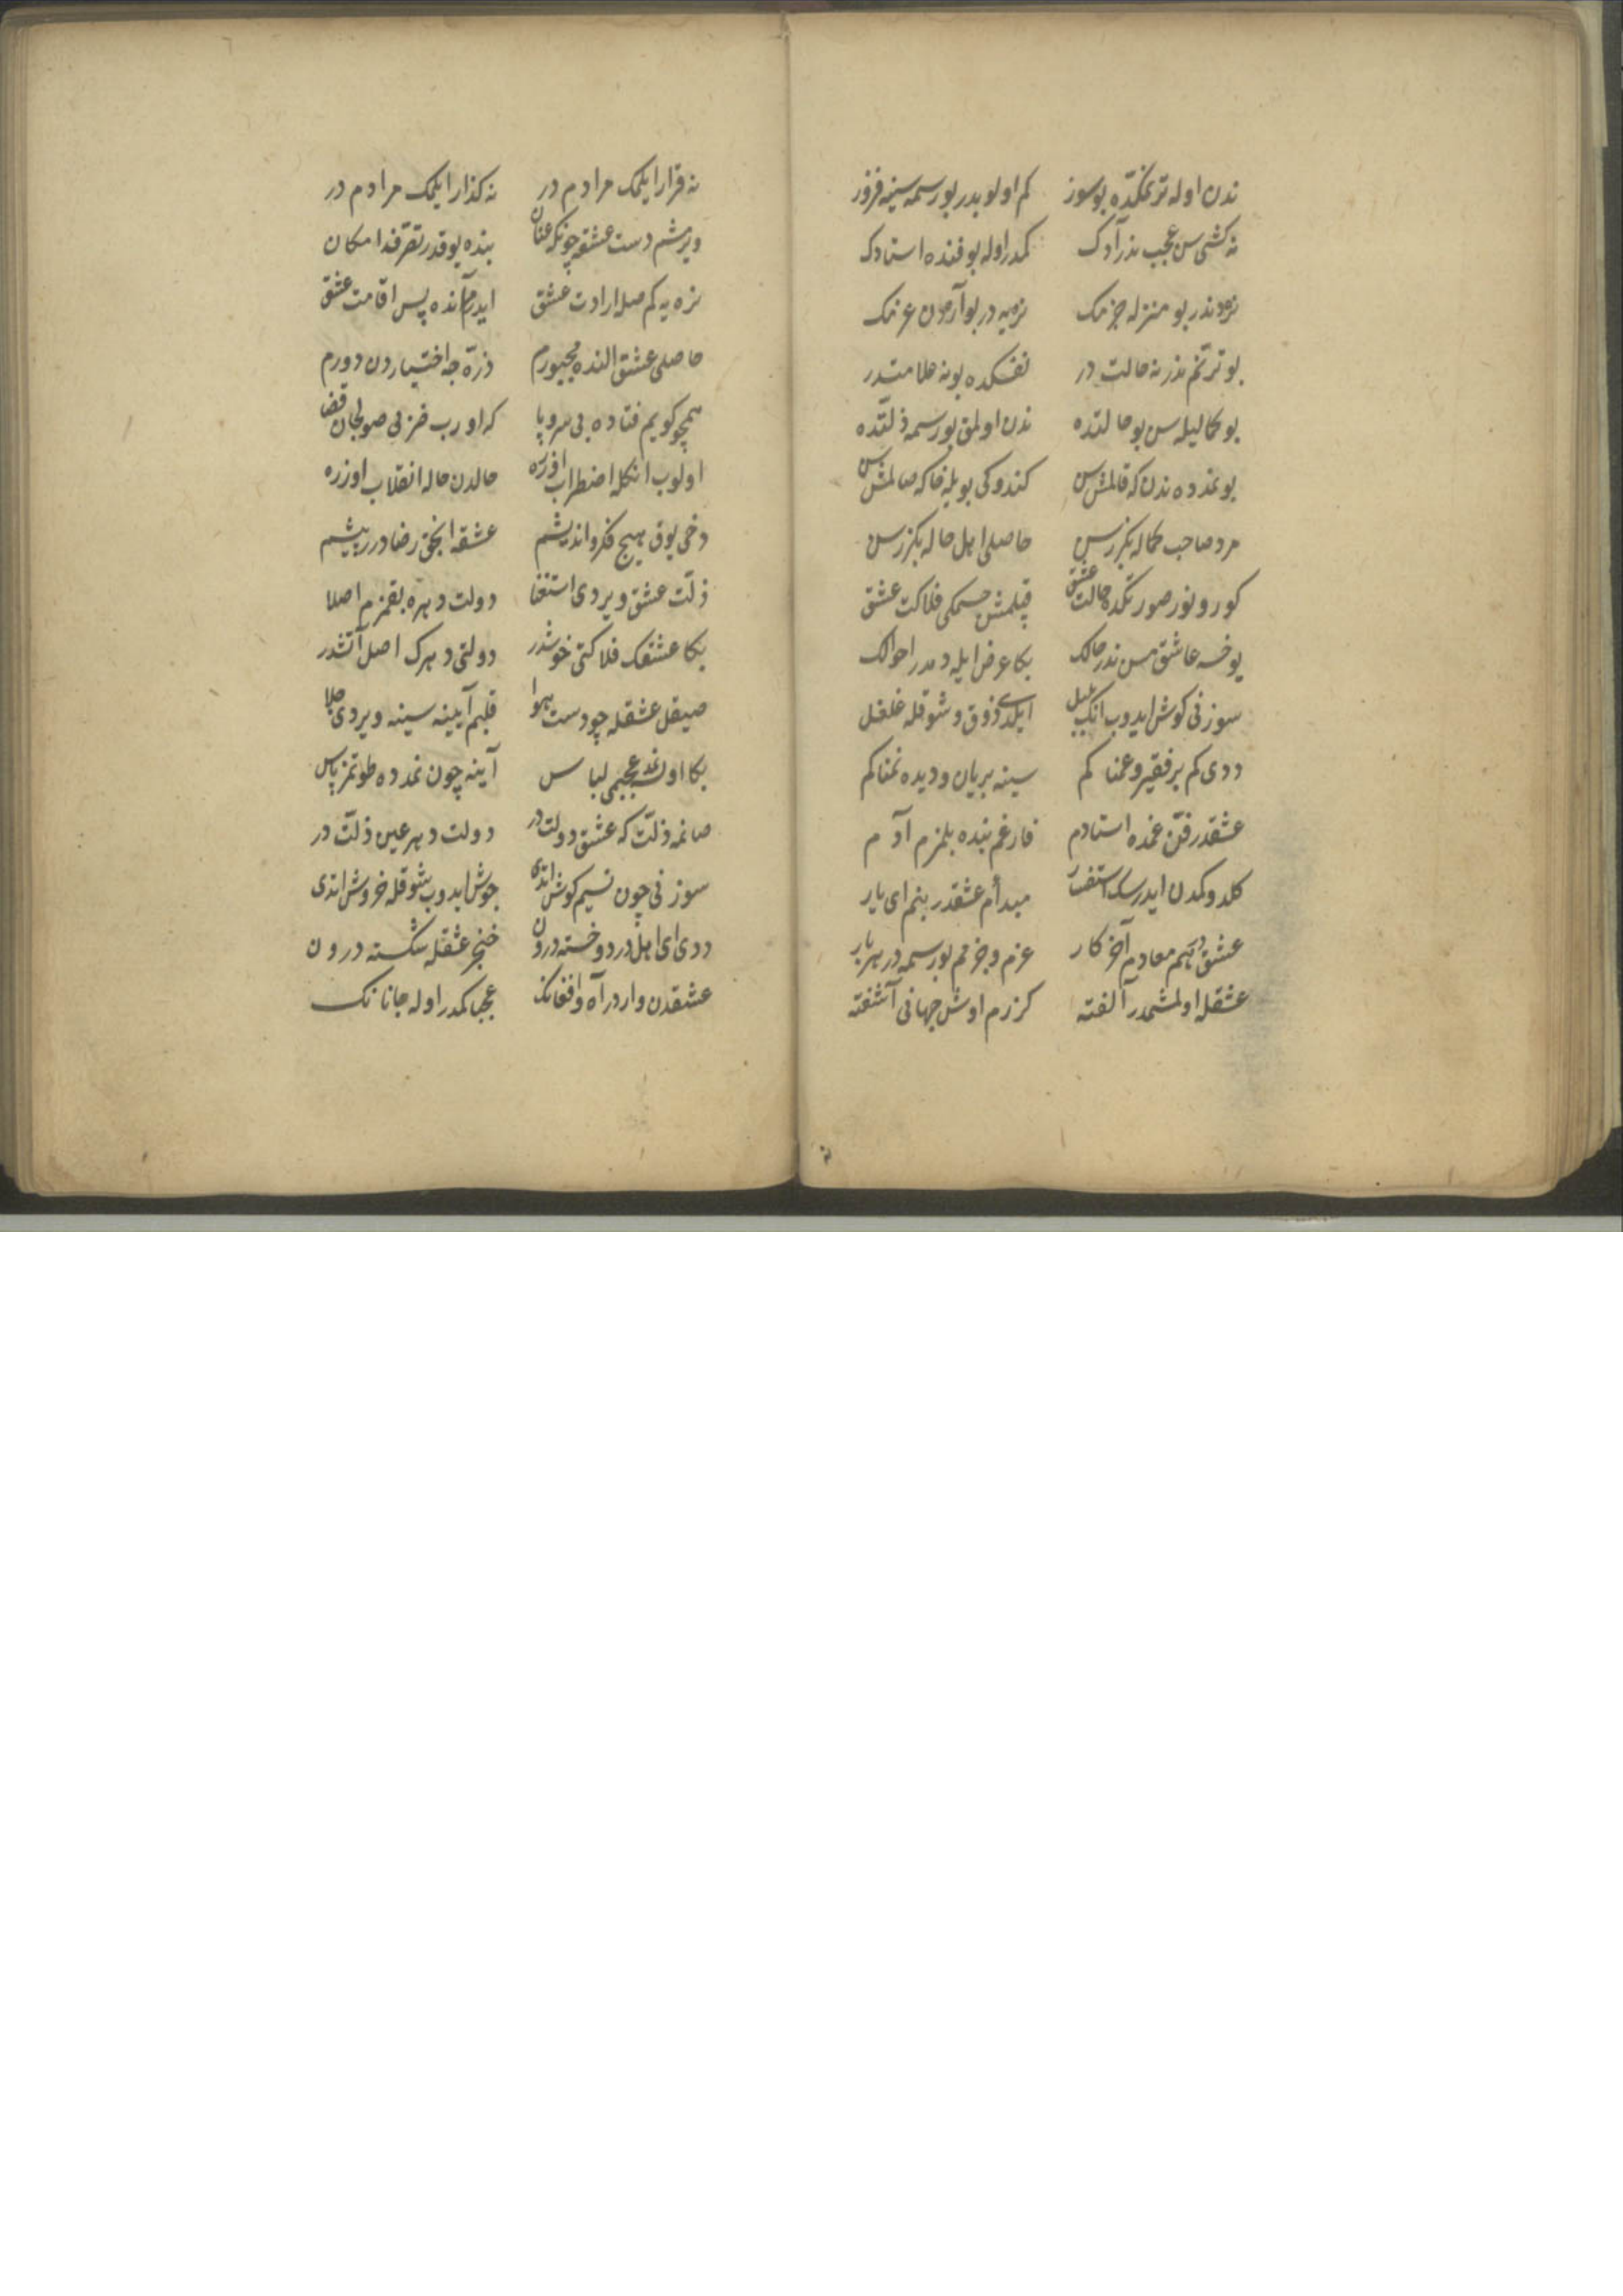 ندن اوله ترنمكده بو سوز كم اولوبدر بو رسمه سينه فروز
نه كشى سن عجب ندر آدك كمدر اوله بو فنده استادك
نره دندر بو منزله جزمك نره يه در بو آرادن عزمك
بو ترنم ندر نه حالت در نفسكده بو نه ملامتدر
بو كماليله سن بو حالتده ندن اولمق بو رسمه ذلتده
بو نمدده ندن كه قالمش سن كندوكى بويله خاكه صالمش سن
مرد صاحب كماله بكزرسن حاصلى اهل حاله بكزرسن
كورونور صورتكده حالت عشق قيلمش جسمكى فلاكت عشق
يوخسه عاشق مسن ندر حالك بكا عرض ايله دمدر احوالك
سوزنى كوش ايدوب انك بلبل ايلدى ذوق و شوقله غلغل
ددى كم بر فقير و غمناكم سينه بريان و ديده نمناكم
عشقدر فن غمده استادم فارغم بنده بلمزم آدم
كلدوكمدن ايدرسك استفسار مبدأم عشقدر بنم اى يار
عشق در هم معادم آخر كار عزم و جزمم بو رسمه در هر بار
عشقله اولمشمدر آلفته كزرم اوش جهانى آشفته
نه قرار ايلمك مرادم در نه كذار ايلمك مرادم در
ويرمشم دست عشقه چونكه عنان بنده يوقدر تصرفه امكان
نره يه كم صله ارادت عشق ايدرم آنده پس اقامت عشق
حاصلى عشق النده مجبورم ذره جه اختياردن دورم
همچو كويم فتاده بى سر و پا كه اورب ضربى صولجان قضا
اولوب انكله اضطراب اوزره حالدن حاله انقلاب اوزره
دخى يوق هيچ فكر و انديشم عشقه انجق رضادرر پيشم
ذلت عشق ويردى استغنا دولت دهره بقمزم اصلا
بكا عشقك فلاكتى خوشدر دولتى دهرك اصل آتشدر
صيقل عشقله چو دست هوا قلبم آيينه سينه ويردى جلا
بكا اولدى نمد عجبمى لباس آينه چون نمدده طوتمز پاس
صانمه ذلت كه عشق دولت در دولت دهر عين ذلت در
سوزنى چون نسيم كوش اتدى جوش ايدوب شوقله خروش اتدى
ددى اى اهل درد و خسته درون خنجر عشقله شكسته درون
عشقدن واردر آه و افغانك عجبا كمدر اوله جانانك